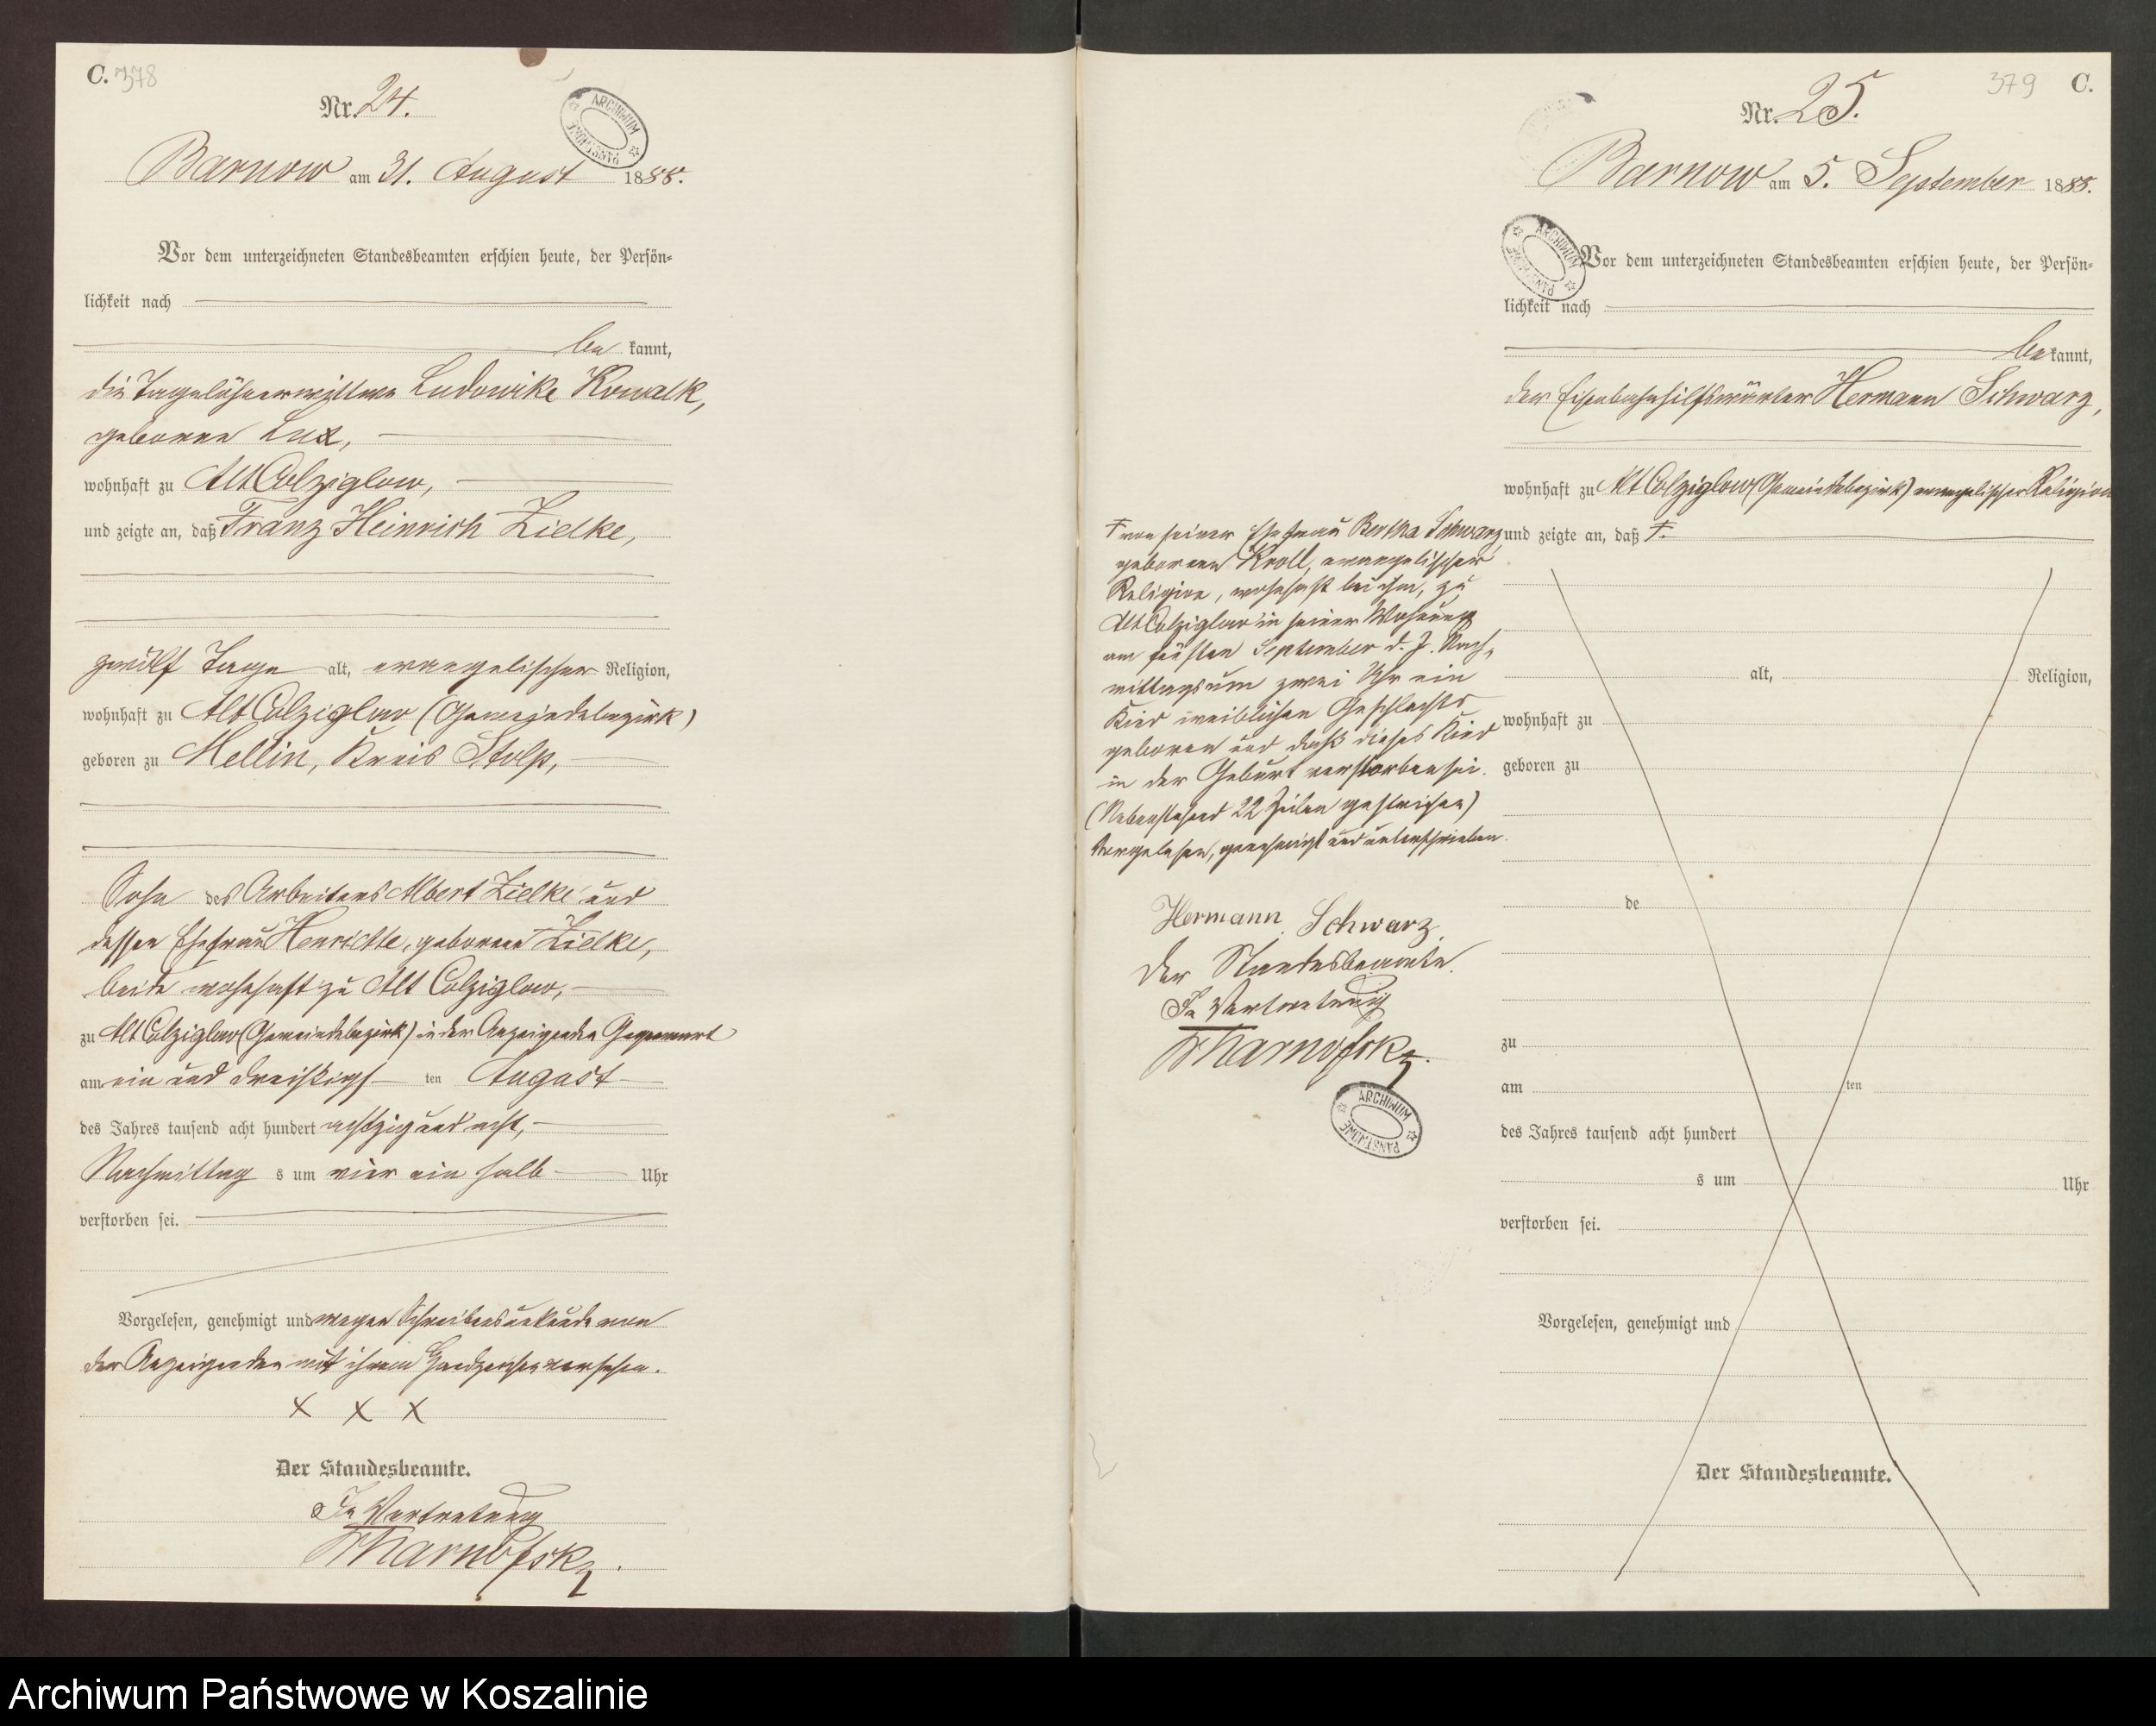 C. 378
Nr. 24.
ARCHIWUM PAŃSTWOWE
Barnow am 31. August 1888.
Vor dem unterzeichneten Standesbeamten erschien heute, der Persön-
lichkeit nach
be kannt,
die Tagelöhnerwittwe Ludowike Kowalk,
geborene Lux,
wohnhaft zu Alt Colziglow,
und zeigte an, daß Franz Heinrich Zielke,
zwölf Tage alt, evangelischer Religion,
wohnhaft zu Alt Colziglow (Gemeindebezirk)
geboren zu Mellin, Kreis Stolp,
Sohn des Arbeiters Albert Zielke und
dessen Ehefrau Henriette, geborene Zielke,
beide wohnhaft zu Alt Colziglow,
zu Alt Colziglow (Gemeindebezirk) in der Anzeigenden Gegenwart
am ein und dreißigs ten August
des Jahres tausend acht hundert achtzig und acht,
Nachmittag s um vier ein halb Uhr
verstorben sei.
Vorgelesen, genehmigt und wegen Schreibensunkunde von
der Anzeigenden mit ihrem Handzeichen versehen.
X X X
Der Standesbeamte.
In Vertretung
379 C.
Nr. 25.
Barnow am 5. September 1888.
ARCHIWUM PAŃSTWOWE
Vor dem unterzeichneten Standesbeamten erschien heute, der Persön-
lichkeit nach
be kannt,
der Eisenbahnhilfswärter Hermann Schwarz,
wohnhaft zu Alt Colziglow (Gemeindebezirk) evangelischer Religion
und zeigte an, daß †.
† von seiner Ehefrau Bertha Schwarz
geborenen Kroll, evangelischer
Religion, wohnhaft bei ihm, zu
Alt Colziglow in seiner Wohnung
am fünften September d. J. Nach-
mittags um zwei Uhr ein
Kind weiblichen Geschlechts
geboren und daß dieses Kind
in der Geburt verstorben sei.
(Nebenstehend 22 Zeilen gestrichen)
Vorgelesen, genehmigt und unterschrieben.
Hermann Schwarz.
Der Standesbeamte.
In Vertretung
ARCHIWUM PAŃSTWOWE
alt, Religion,
wohnhaft zu
geboren zu
de
zu
am ten
des Jahres tausend acht hundert
s um Uhr
verstorben sei.
Vorgelesen, genehmigt und
Der Standesbeamte.
Archiwum Państwowe w Koszalinie